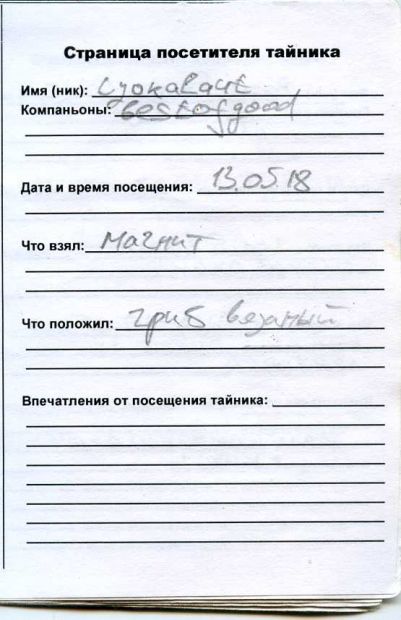 Страница посетителя тайника
Имя (ник):
Компаньоны: bestofgood
Дата и время посещения: 13.05.18
Что взял: магнит
Что положил: гриб вязаный
Впечатления от посещения тайника: